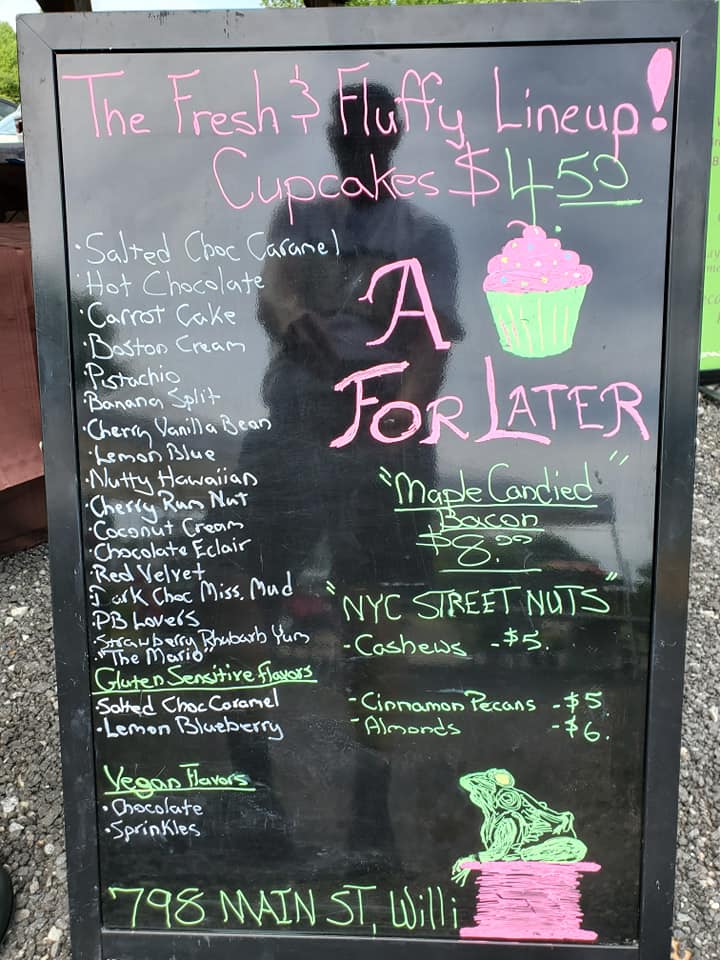 The Fresh & Fluffy Lineup!
Cupcakes $4.50
· Salted Choc Caramel
· Hot Chocolate
· Carrot Cake
· Boston Cream
· Pistachio
· Banana Split
· Cherry Vanilla Bean
· Lemon Blue
· Nutty Hawaiian
· Cherry Rum Nut
· Coconut Cream
· Chocolate Eclair
· Red Velvet
· Dark Choc Miss. Mud
· PB Lovers
· Strawberry Rhubarb Yum
· "The Mario"
Gluten Sensitive Flavors
· Salted Choc Caramel
· Lemon Blueberry
Vegan Flavors
· Chocolate
· Sprinkles
A
FOR LATER
"Maple Candied
Bacon"
$8.00
"NYC STREET NUTS"
- Cashews - $5.
- Cinnamon Pecans - $5
- Almonds - $6.
798 MAIN ST, Willi